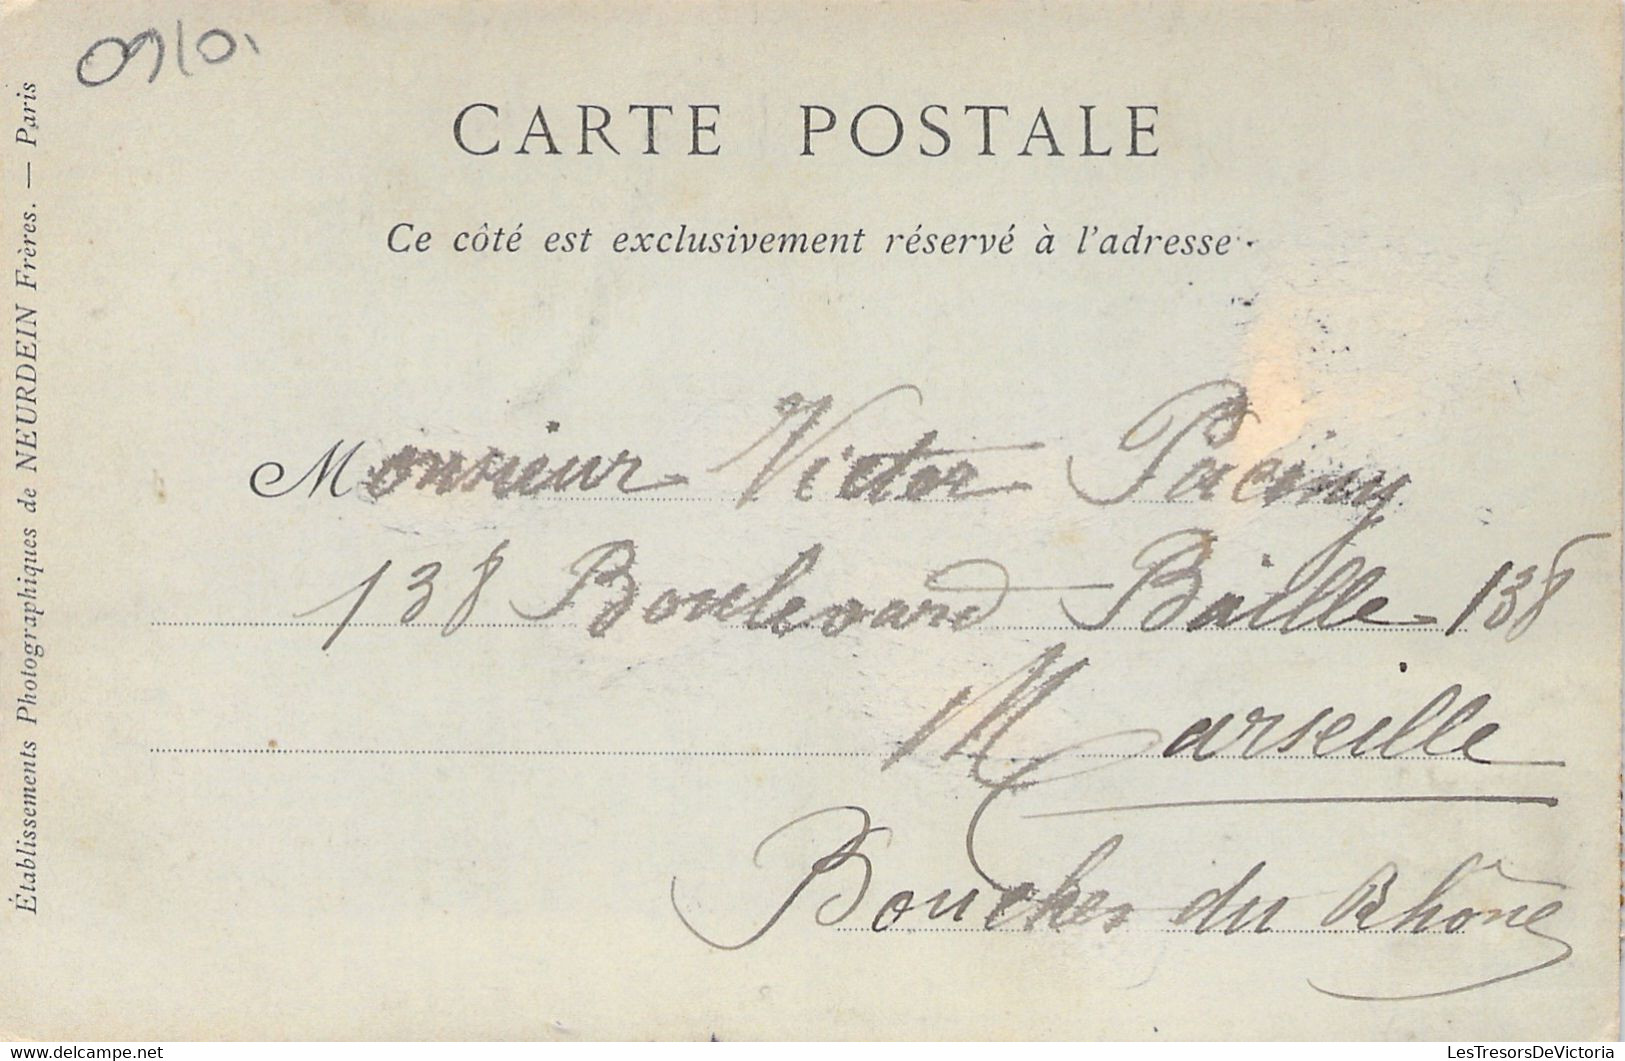 09/01
CARTE POSTALE
Ce côté est exclusivement réservé à l'adresse
Monsieur Victor
138 Boulevard Baille 138
Marseille
Bouches du Rhône
Établissements Photographiques de NEURDEIN Frères. — Paris
www.delcampe.net
LesTresorsDeVictoria